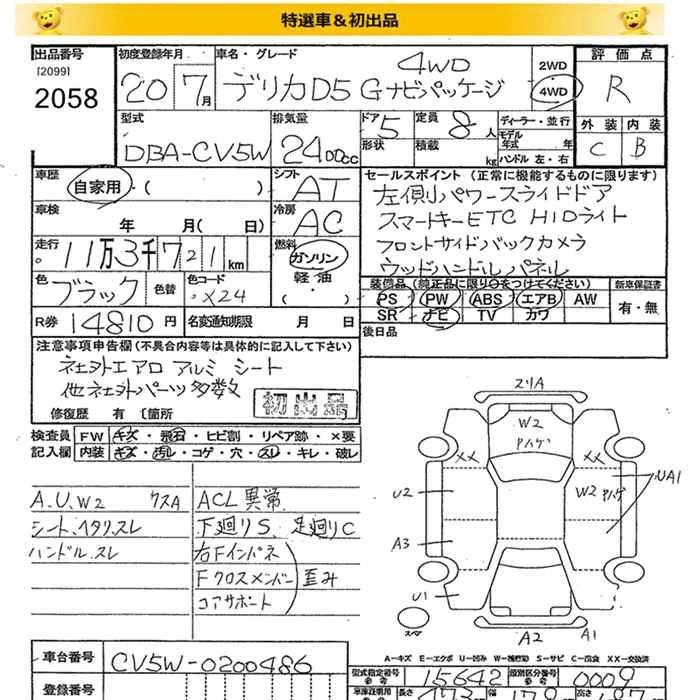 特選車＆初出品
出品番号
[2099]
2058
初度登録年月
20 7月
車名・グレード
4WD
デリカD5 Gナビパッケージ
2WD
4WD
評価点
R
外装 内装
C B
型式
DBA-CV5W
排気量
2400cc
ドア 5
形状
定員 8人
積載 kg
ディーラー・並行
モデル年式 年
ハンドル 左・右
車歴
自家用・( )
シフト
AT
セールスポイント（正常に機能するものに限ります）
左側パワースライドドア
スマートキーETC HIDライト
フロントサイドバックカメラ
ウッドハンドルパネル
車検
年 月( 日)
冷房
AC
走行
11万3千721km
燃料
ガソリン
軽油
・( )
色
ブラック
色替
色コード
X24
装備品（純正品に限り○をつけてください）
PS PW ABS エアB AW
SR ナビ TV カワ
新車保証書
有・無
R券 14810円
名変通知期限 月 日
後日品
注意事項申告欄（不具合内容等は具体的に記入して下さい）
社外エアロ アルミ シート
他社外パーツ多数
初出品
修復歴 有〔箇所
検査員記入欄
FW キズ・飛石・ヒビ割・リペア跡・×要
内装 キズ・汚レ・コゲ・穴・スレ・キレ・破レ
A.U.W2 クスA
シート.ヘタリ.スレ
ハンドル.スレ
ACL異常
下廻りS、足廻りC
右Fインパネ
Fクロスメンバー 歪み
コアサポート
W2
XX
XX
U2
W2
A3
U1
A2
A1
スペア
A－キズ E－エクボ U－凹み W－補修跡 S－サビ C－腐食 XX－交換済
車台番号
CV5W-0200486
登録番号
型式指定番号 15642
類別区分番号 0009